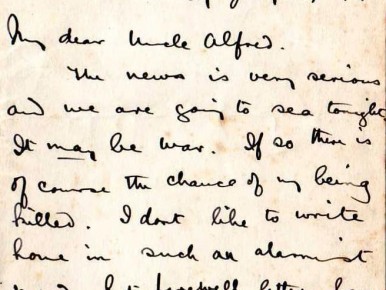 My dear Uncle Alfred.
The news is very serious
and we are going to sea tonight
It may be war. If so there is
of course the chance of my being
killed. I dont like to write
home in such an alarmist
farewell letter